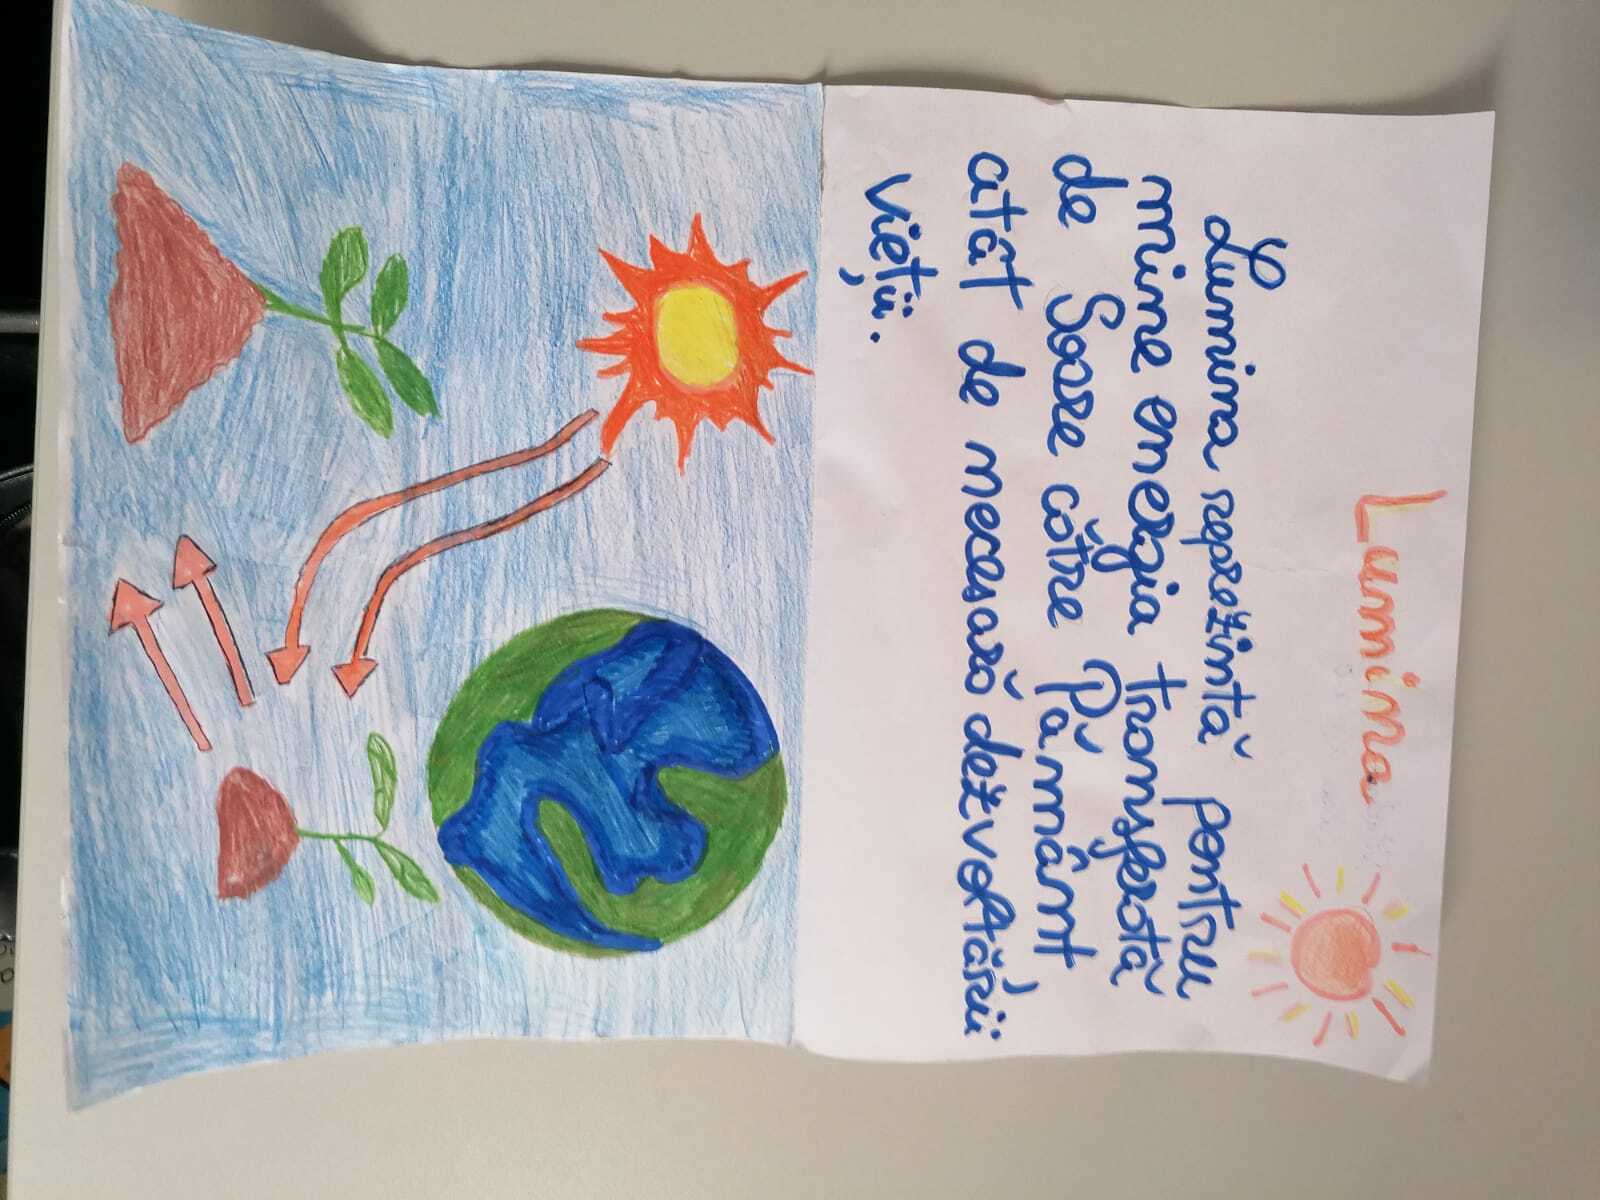 Lumina
Lumina reprezintă pentru
mine energia transferată
de Soare către Pământ
atât de necesară dezvoltării
vieții.